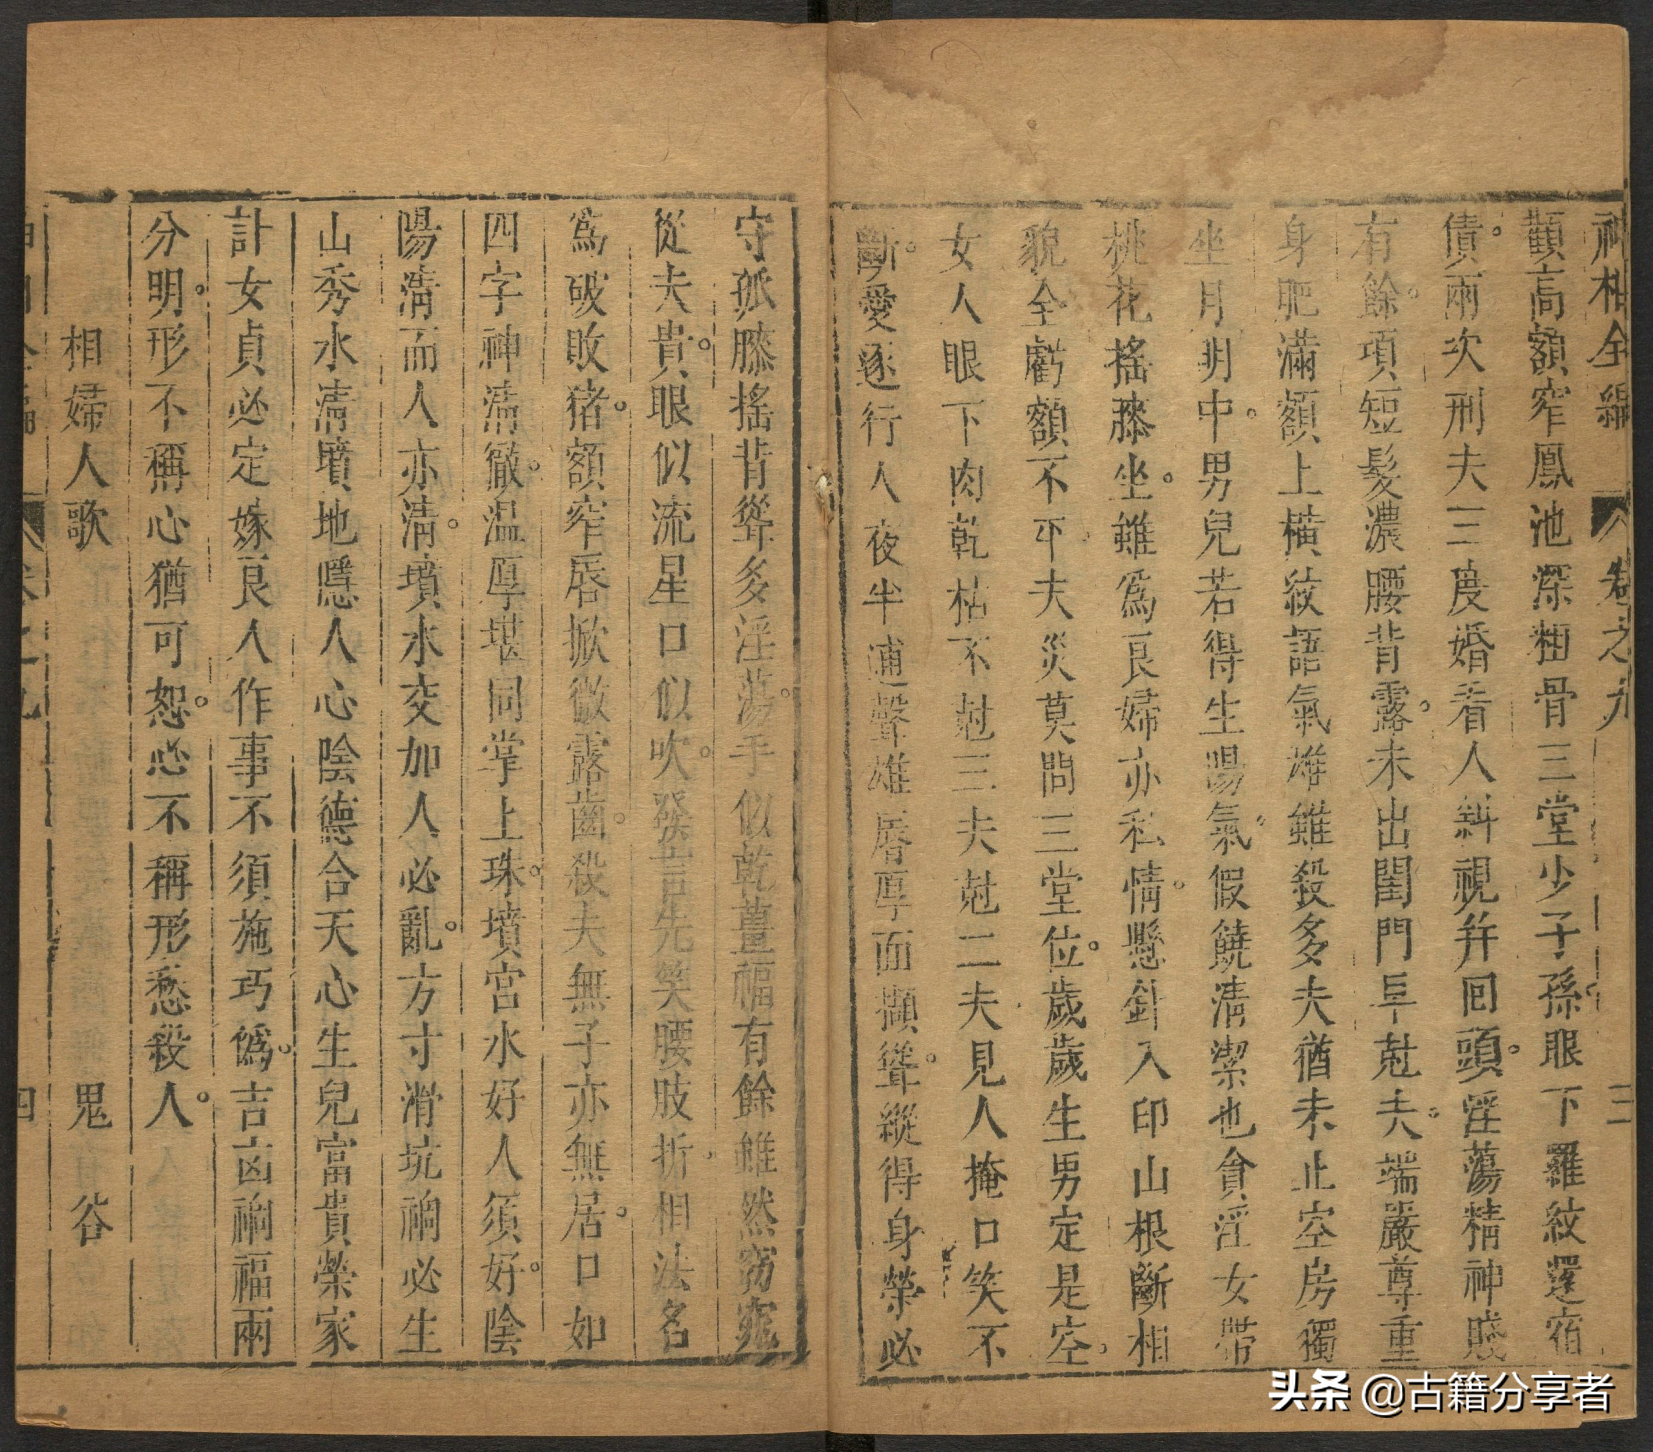 神相全編 卷之九 三
顴高額窄鳳池深粗骨三堂少子孫眼下羅紋還宿
債兩次刑夫三度婚看人斜視并回頭淫蕩精神賤
有餘項短髮濃腰背露未出閨門早尅夫端嚴尊重
身肥滿額上橫紋語氣雄雖殺多夫猶未止空房獨
坐月明中男兒若得生陽氣假饒淸潔也貪淫女帶
桃花搖膝坐雖爲良婦亦私情懸針入印山根斷相
貌全虧額不平夫災莫問三堂位歲歲生男定是空
女人眼下肉乾枯不尅三夫尅二夫見人掩口笑不
斷愛逐行人夜半逋聲雄唇厚面顴聳縱得身榮必
守孤膝搖背聳多淫蕩手似乾薑福有餘雖然窈窕
從夫貴眼似流星口似吹發言先笑腰肢折相法名
爲破敗猪額窄唇掀微露齒殺夫無子亦無居口如
四字神淸徹温厚堪同掌上珠墳宮水好人須好陰
陽淸而人亦淸墳水交加人必亂方寸滑坑禍必生
山秀水淸墳地隱人心陰德合天心生兒富貴榮家
計女貞必定嫁良人作事不須施巧僞吉凶禍福兩
分明形不稱心猶可恕心不稱形愁殺人
相婦人歌 鬼谷
四
頭条 @古籍分享者